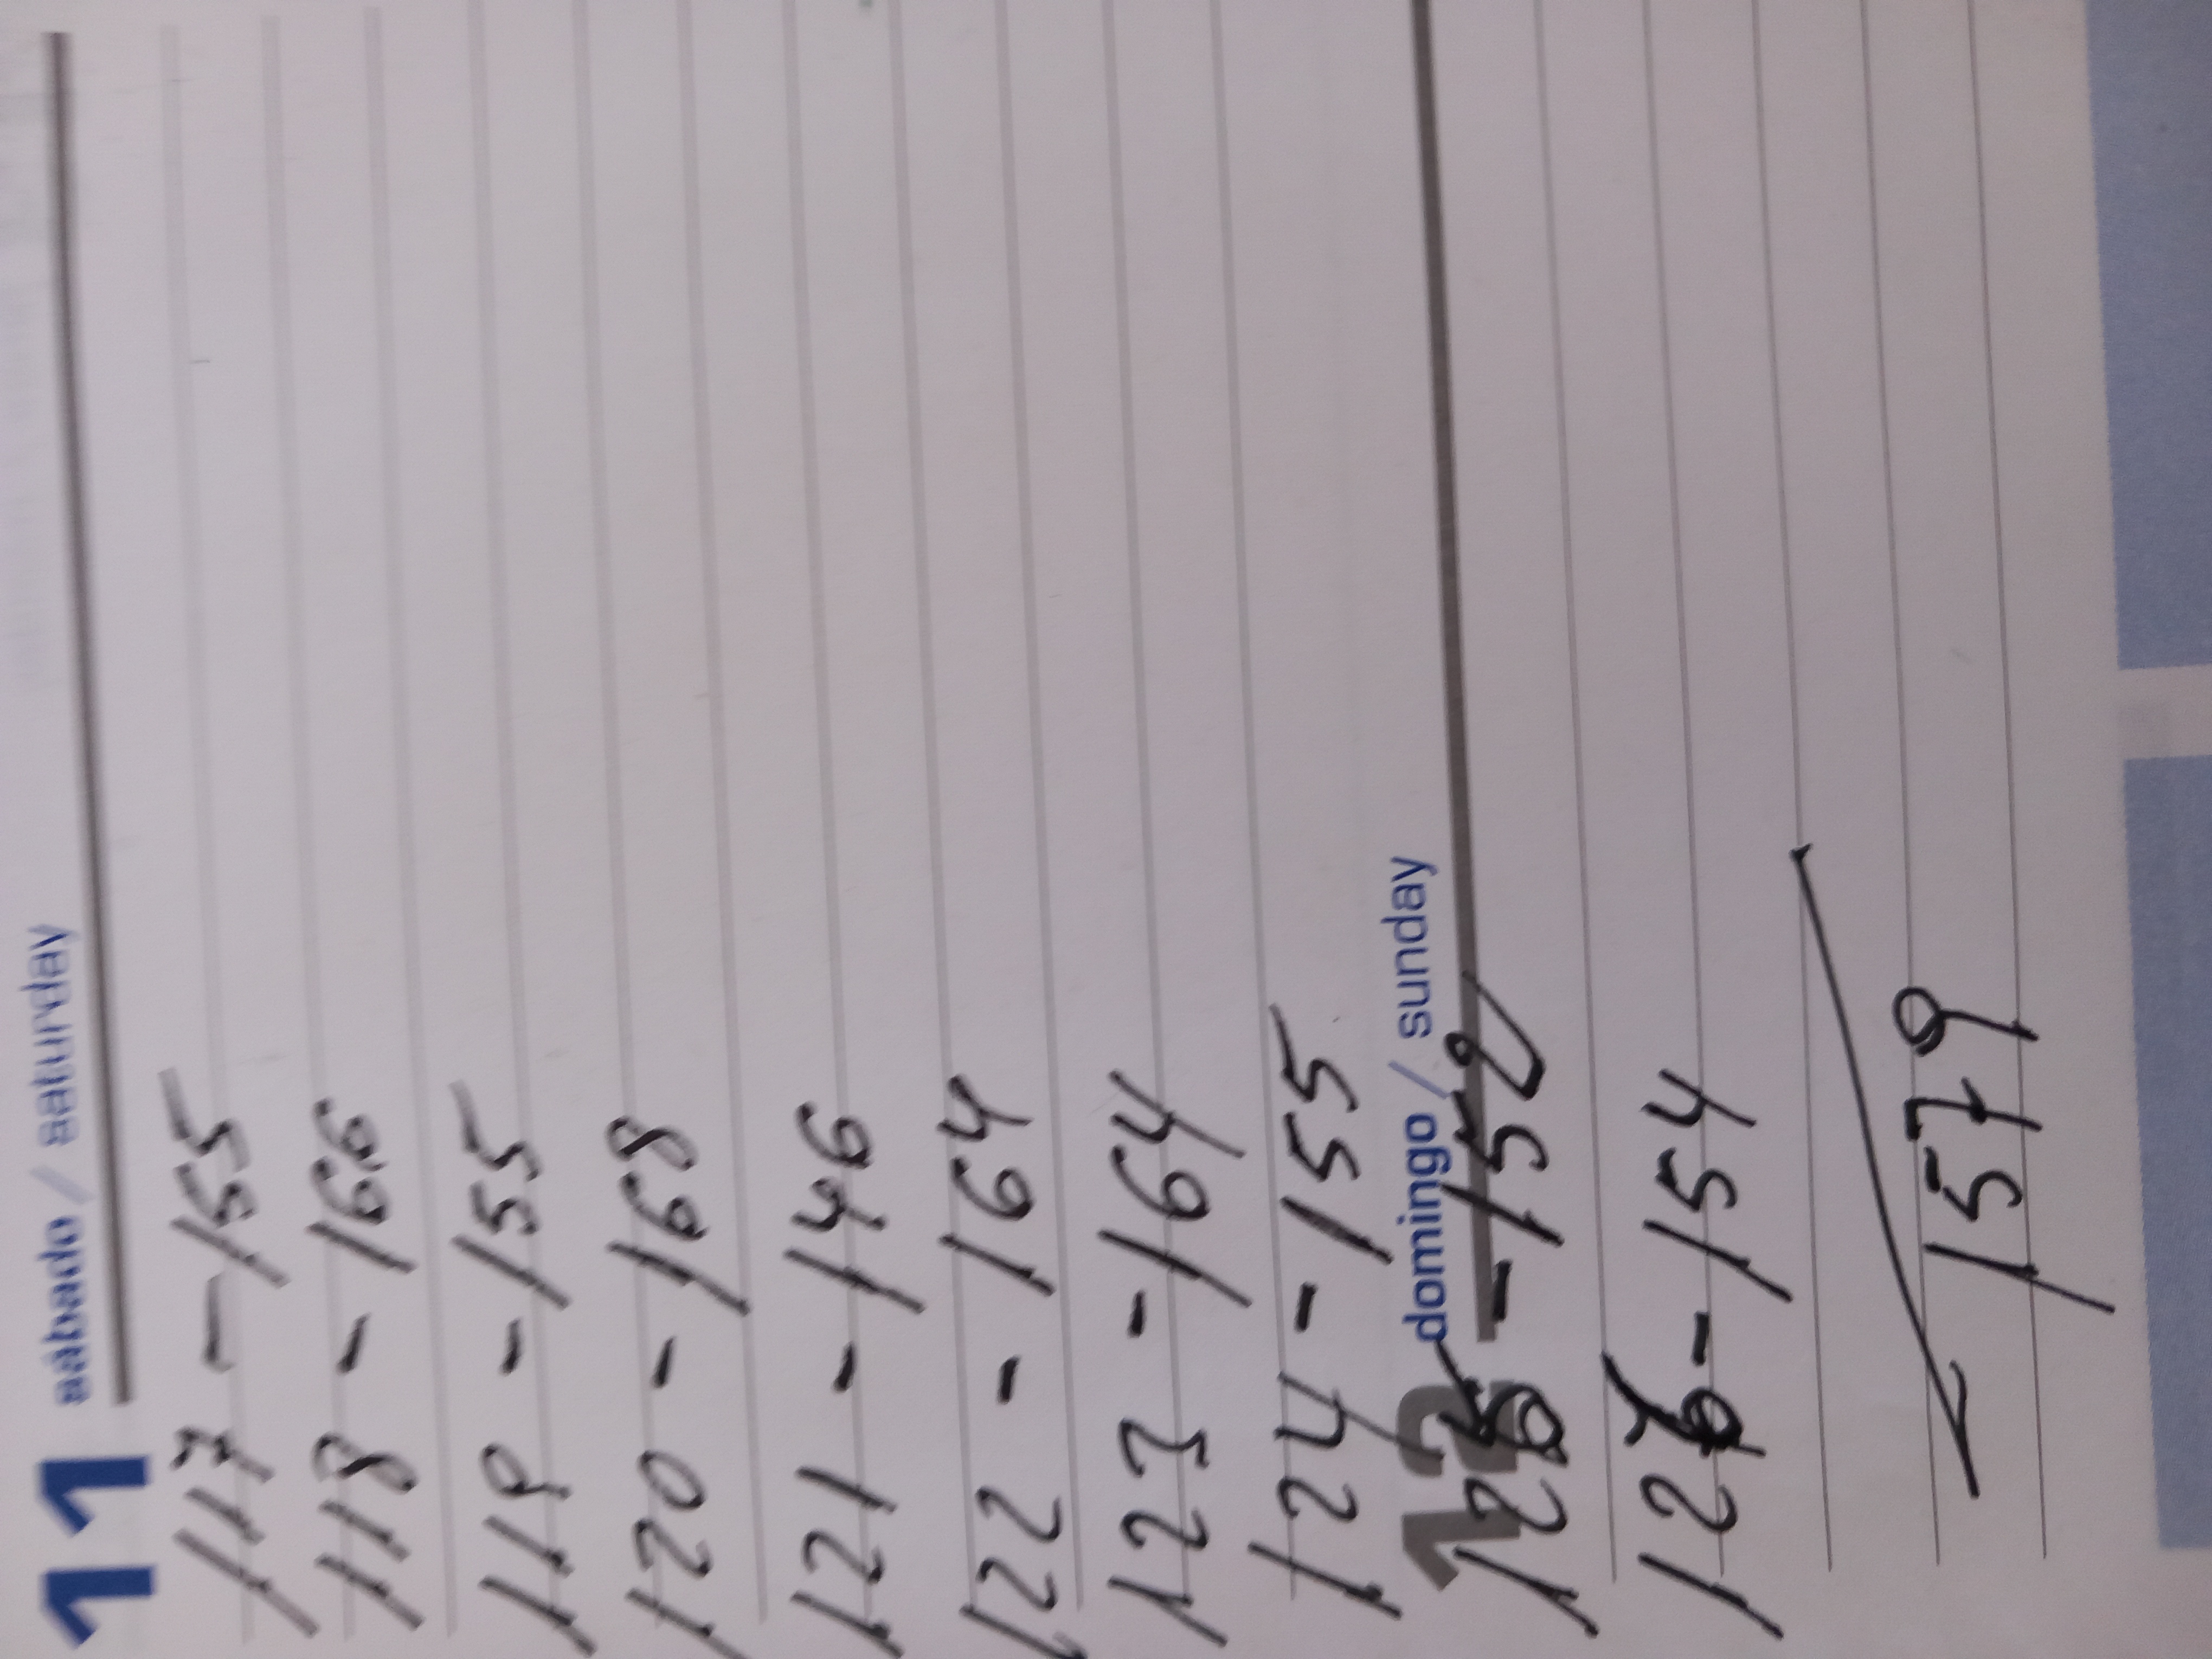 11 sábado / saturday
117 - 155
118 - 166
119 - 155
120 - 168
121 - 146
122 - 164
123 - 164
124 - 155
12 domingo / sunday
125 - 152
126 - 154
1579